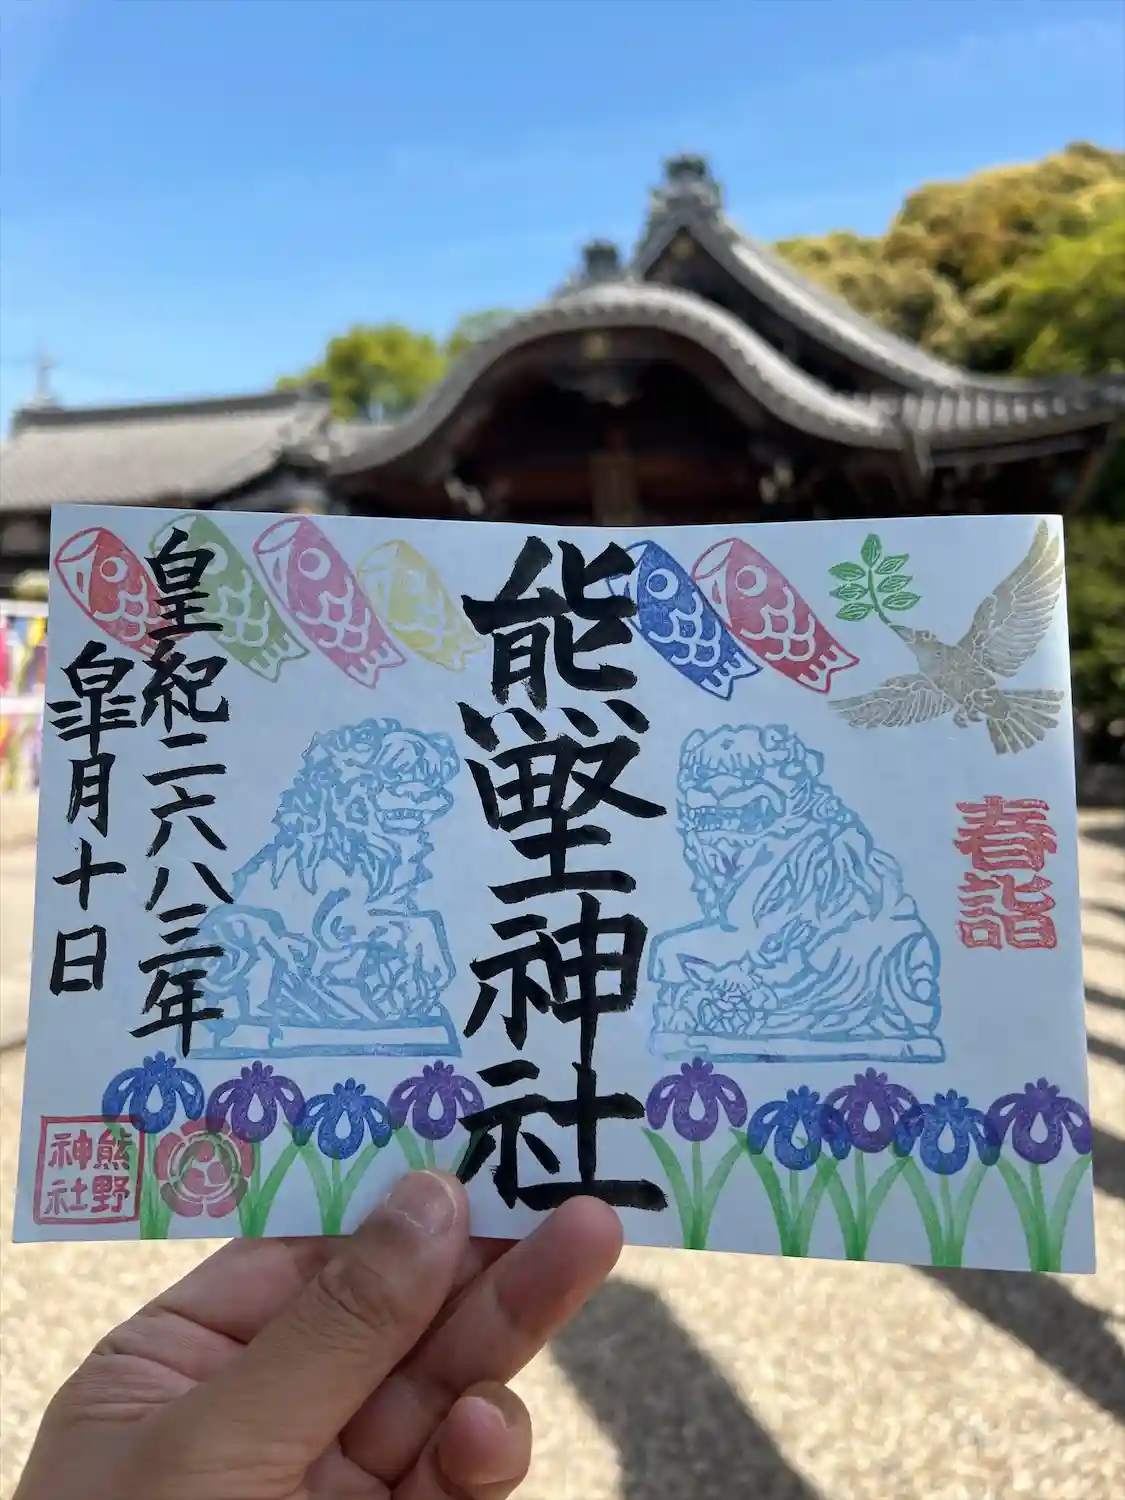 春詣
熊野神社
皇紀二六八三年
皐月十日
熊野
神社